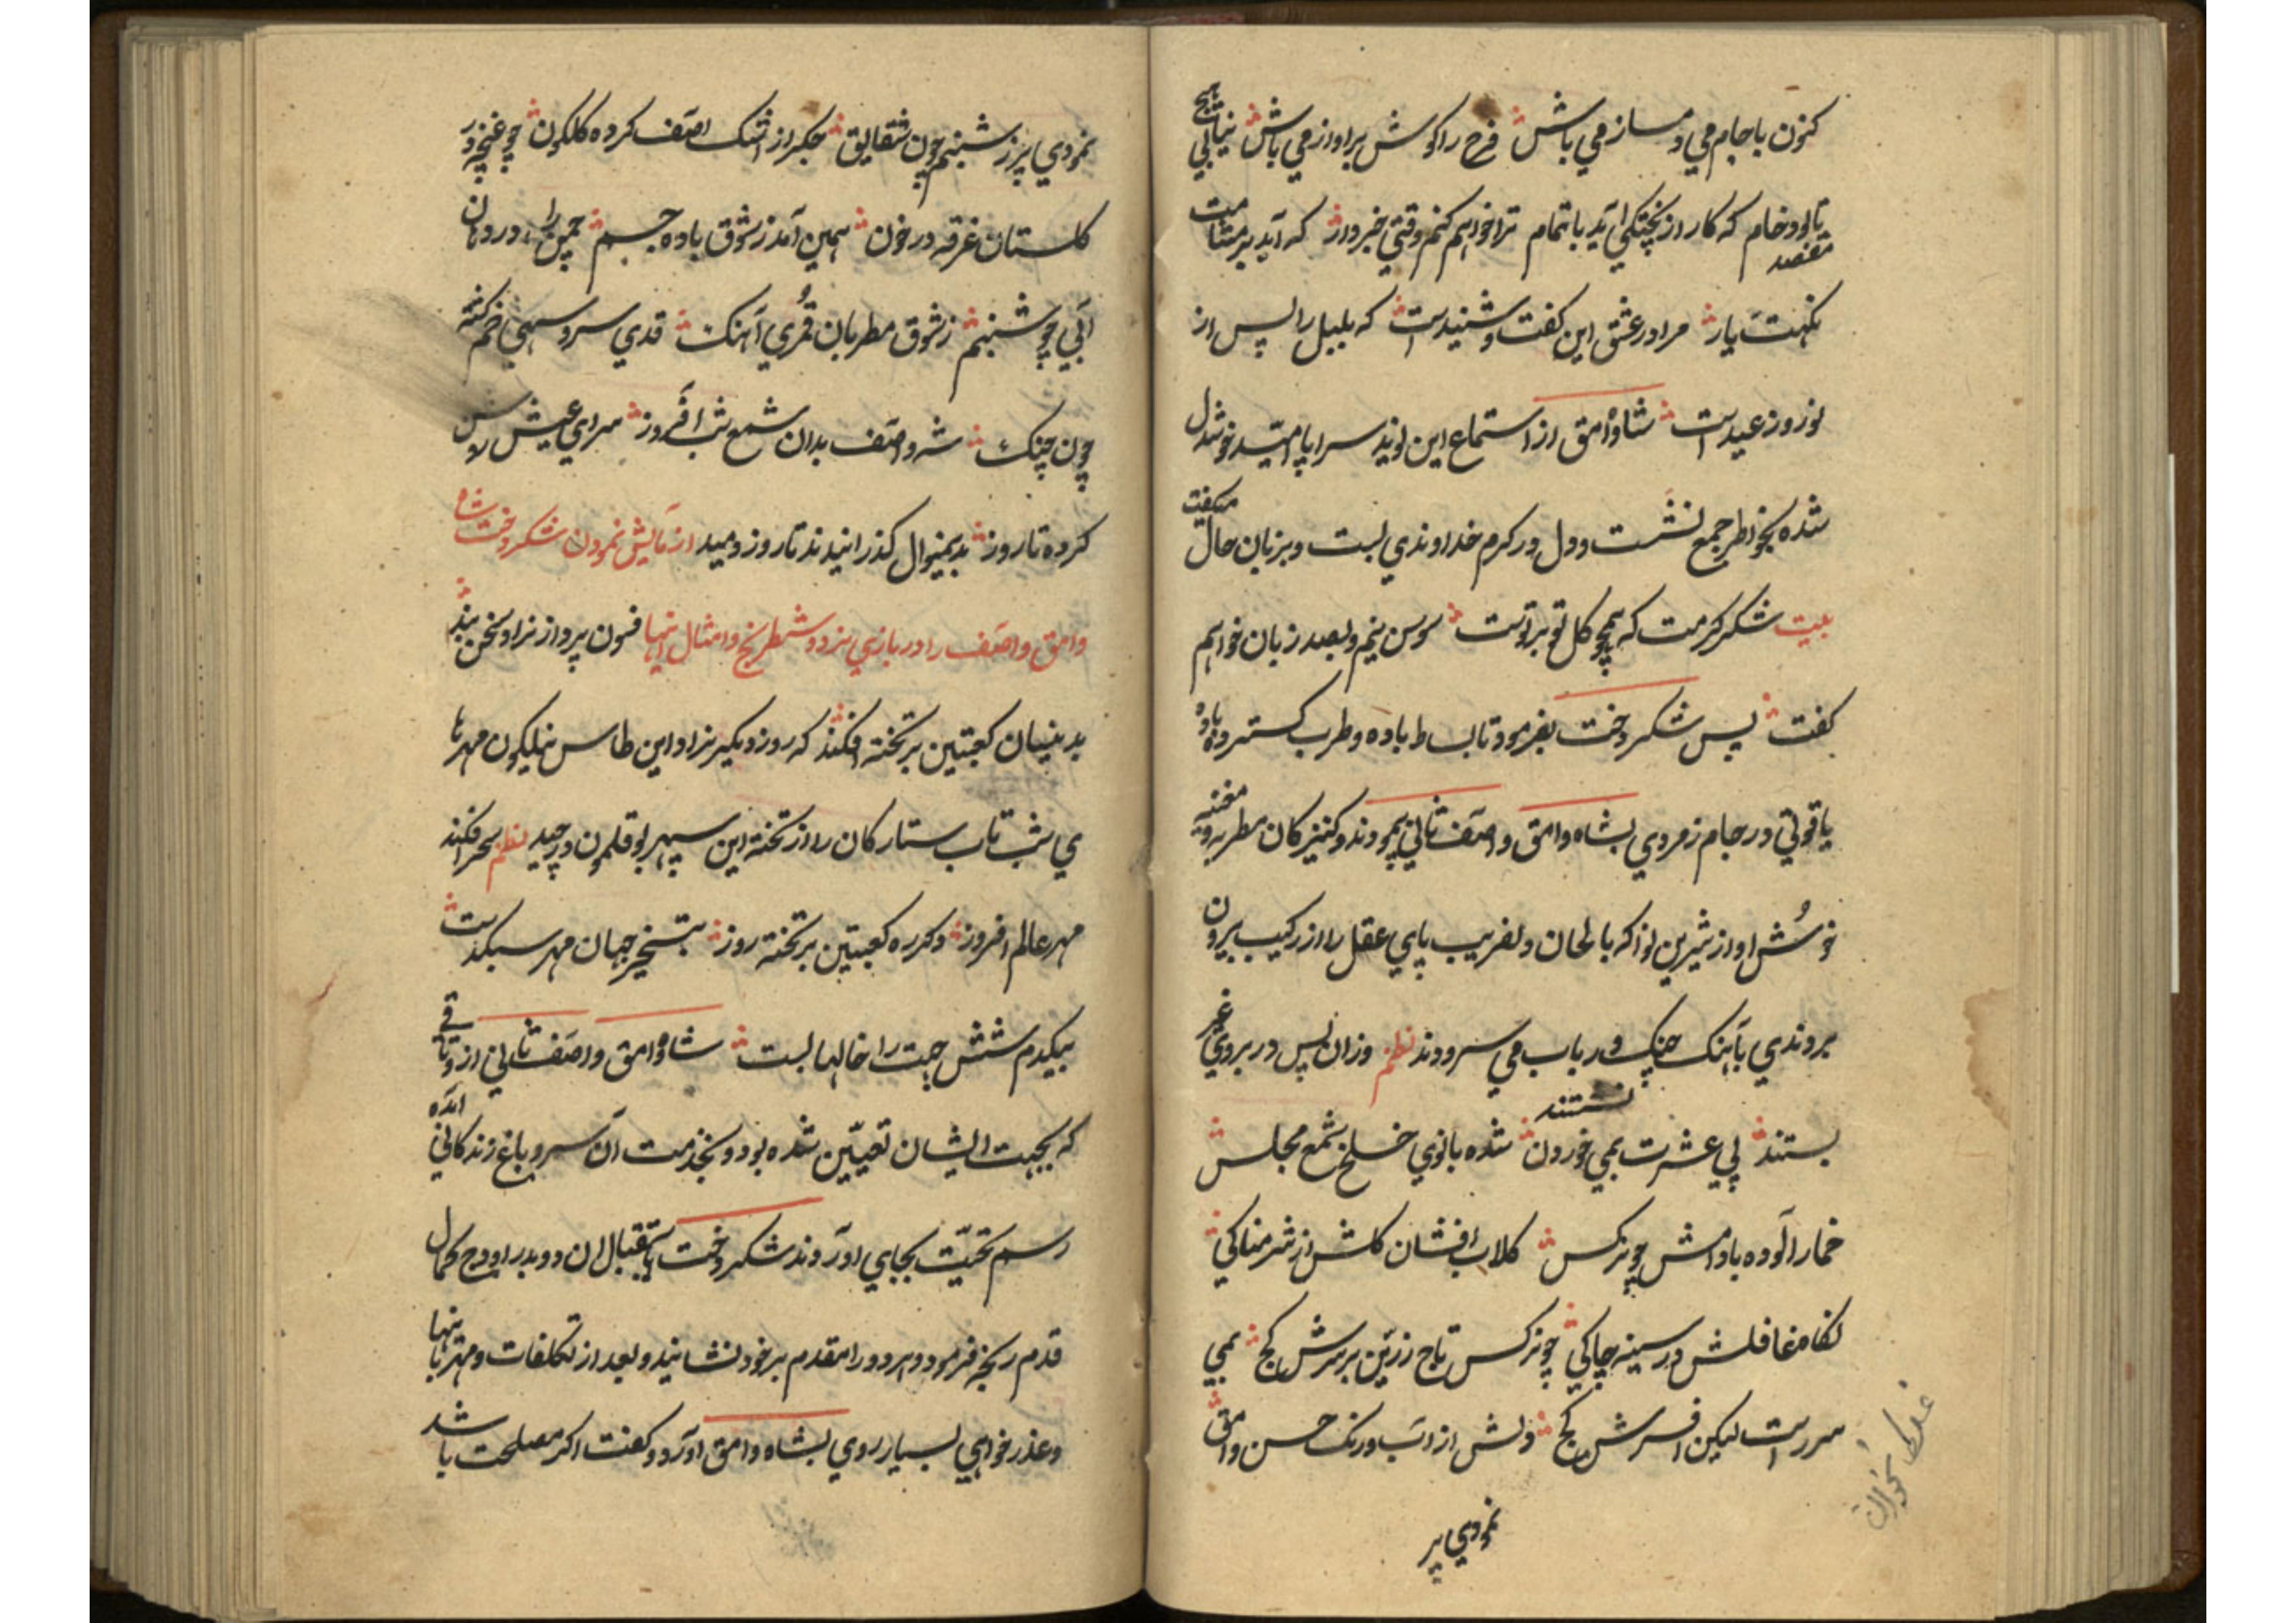 کنون باجام می دمساز می باش فرح را کوش براواز می باش نیابی هیچ
تالودخام که کار از پختکی آید باتمام ترا خواهم کنم وقتی خبردار که آید بر مشامت
مقصد
نکهت یار مرا در عشق این کفت و شنیدست که بلبل را پس از
نوروز عیدست شاه وامق از استماع این نوید سراپا امید خوشدل
شده بخواطر جمع نشست و دل در کرم خداوندی بست و بزبان حال میکفت
بیت شکر کرمت که همچو کل تو بر تو است سوسن نیم و بصد زبان خواهم
کفت پس شکر دخت بفرمود تا بساط باده و طرب کستردند باده
یاقوتی در جام زمردی بشاه وامق و اصف ثانی پیمودند و کنیزکان مطربه و مغنیه
خوش اواز شیرین نوا که بالحان دلفریب پای عقل را از رکیب بیرون
بردندی بآهنک چنک و رباب می سرودند نظم وزان پس در بروی غیر
بستند پی عشرت بمی خوردن نشستند شده بانوی خلخ شمع مجلس
خمار آلوده بادامش چو نرکس کلاب افشان کلش از شرمناکی
نکاه غافلش در سینه چاکی چو نرکس تاج زرین بر سرش کج بمی
سر راست لیکن افسرش کج دلش از اب و رنک حسن وامق
نمودی پر
نمودی پر ز شبنم چون شقایق جکر از اشک اصف کرده کلکون چو غنچه در
کلستان غرقه در خون همین آمد ز شوق باده جسم چمن را در دهان
آبی چو شبنم ز شوق مطربان قمری آهنک قدی سرو سهی خم کشته
چون چنک شه و اصف بدان شمع شب افروز سرای عیش روشن
کرده تا روز بدینمنوال کذرانیدند تا روز دمید ازمایش نمودن شکر دخت شاه
وامق و اصف را در بازی نرد و شطرنج و امثال اینها فسون پرداز نراد سخن بند
بدینسان کعبتین بر تخته افکند که روز دیکیر نراد این طاس نیلکون مهرها
ی شب تاب ستارکان را از تخته این سپهر بوقلمون در چید نظم سحر افکند
مهر عالم افروز دکر ره کعبتین بر تخته روز بتسخیر جهان مهر سبکدست
بیکدم شش جهت را خالها بست شاه وامق و اصف ثانی از وثاقی
که بجهت ایشان تعیین شده بود و بخدمت ان سرو باغ زندکانی امده
رسم تحیت بجای اوردند شکر دخت باستقبال ان دو بدر اوج کمال
قدم رنجه فرمود و هردو را مقدم بر خود نشانید و بعد از تکلفات و مهربانیها
و عذر خواهی بسیار روی بشاه وامق اورد و کفت اکر مصلحت باشد